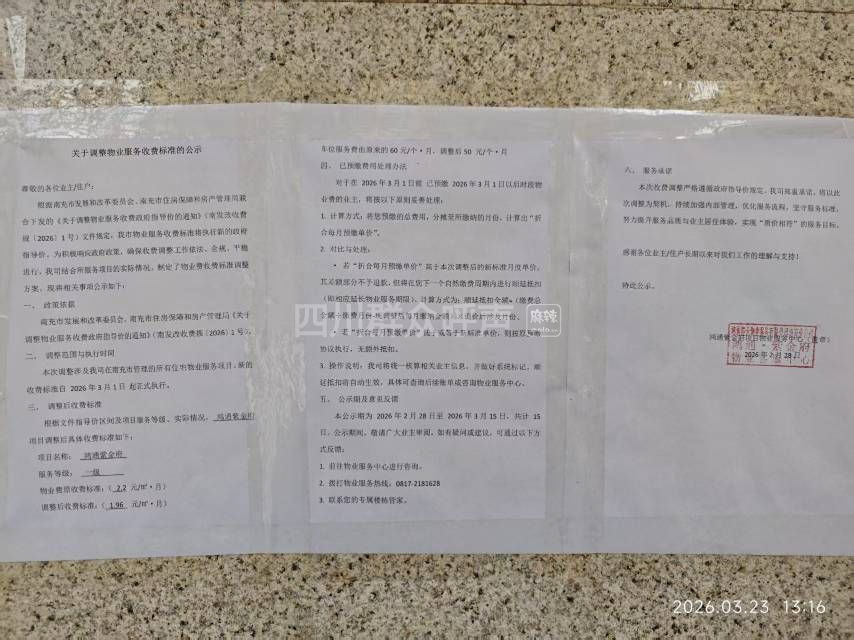 关于调整物业服务收费标准的公示
尊敬的各位业主/住户：
根据南充市发展和改革委员会、南充市住房保障和房产管理局联
合下发的《关于调整物业服务收费政府指导价的通知》（南发改收费
规〔2026〕1号）文件规定，我市物业服务收费标准将执行新的政府
指导价。为积极响应政府政策，确保收费调整工作依法、合规、平稳
进行，我司结合所服务项目的实际情况，制定了物业费收费标准调整
方案，现将相关事项公示如下：
一、 政策依据
南充市发展和改革委员会、南充市住房保障和房产管理局《关于
调整物业服务收费政府指导价的通知》（南发改收费规〔2026〕1号）
二、 调整范围与执行时间
本次调整涉及我司在南充市管理的所有住宅物业服务项目，新的
收费标准自 2026年3月1日起正式执行。
三、 调整后收费标准
根据文件指导价区间及项目服务等级、实际情况， 鸿通紫金府
项目调整后具体收费标准如下：
项目名称： 鸿通紫金府
服务等级： 一级
物业费原收费标准：（ 2.2 元/㎡·月）
调整后收费标准：（ 1.96 元/㎡·月）
车位服务费由原来的 60 元/个·月，调整后 50 元/个·月
四、 已预缴费用处理办法
对于在 2026年3月1日前 已预缴 2026年3月1日以后时段物
业费的业主，将按以下原则妥善处理：
1. 计算方式：将您预缴的总费用，分摊至所缴纳的月份，计算出“折
合每月预缴单价”。
2. 对比与处理：
• 若“折合每月预缴单价”高于本次调整后的新标准月度单价，
其差额部分不予退款，但将在您下一个自然缴费周期内进行顺延抵扣
（即相应延长物业服务期限）。计算方式为：顺延抵扣金额=（缴费总
• 若“折合每月预缴单价”低于或等于新标准单价，则按原
协议执行，无额外抵扣。
3. 操作说明：我司将统一核算相关业主信息，并做好系统标记，顺
延抵扣将自动生效，具体可咨询后续账单或咨询物业服务中心。
五、 公示期及意见反馈
本公示期为 2026年2月28日至 2026年3月15日，共计 15
日。公示期间，敬请广大业主审阅。如有疑问或建议，可通过以下方
式反馈：
1. 前往物业服务中心进行咨询。
2. 拨打物业服务热线：0817-2181628
3. 联系您的专属楼栋管家。
六、 服务承诺
本次收费调整严格遵循政府指导价规定。我司郑重承诺，将以此
次调整为契机，持续加强内部管理，优化服务流程，坚守服务标准，
努力提升服务品质与业主居住体验，实现“质价相符”的服务目标。
感谢各位业主/住户长期以来对我们工作的理解与支持！
特此公示。
鸿通紫金府项目物业服务中心（盖章）
2026年2月28日
鸿通·紫金府
物业服务中心
四川群众呼声
麻辣
2026.03.23 13:16